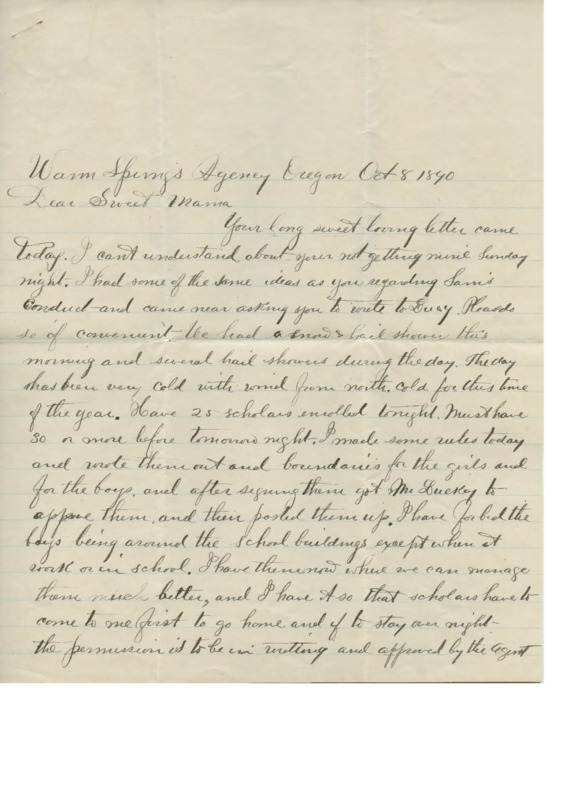 Warm Springs Agency Oregon Oct 8 1890
Dear Sweet Mama
Your long sweet loving letter came
today. I can't understand about your not getting mine Sunday
night. I had some of the same ideas as you regarding Sam's
Conduct and came near asking you to write to Lucy. Please do
so if convenient. We had a snow & hail shower this
morning and several hail showers during the day. The day
has been very cold with wind from north. cold for this time
of the year. Have 25 scholars enrolled tonight. Must have
30 or more before tomorrow night. I made some rules today
and wrote them out and boundaries for the girls and
for the boys. and after signing them got Mr Luckey to
approve them. and then posted them up. I have forbid the
boys being around the school buildings except when at
work or in school. I have them now where we can manage
them much better, and I have it so that scholars have to
come to me first to go home and if to stay over night
the permission is to be in writting and approved by the Agent